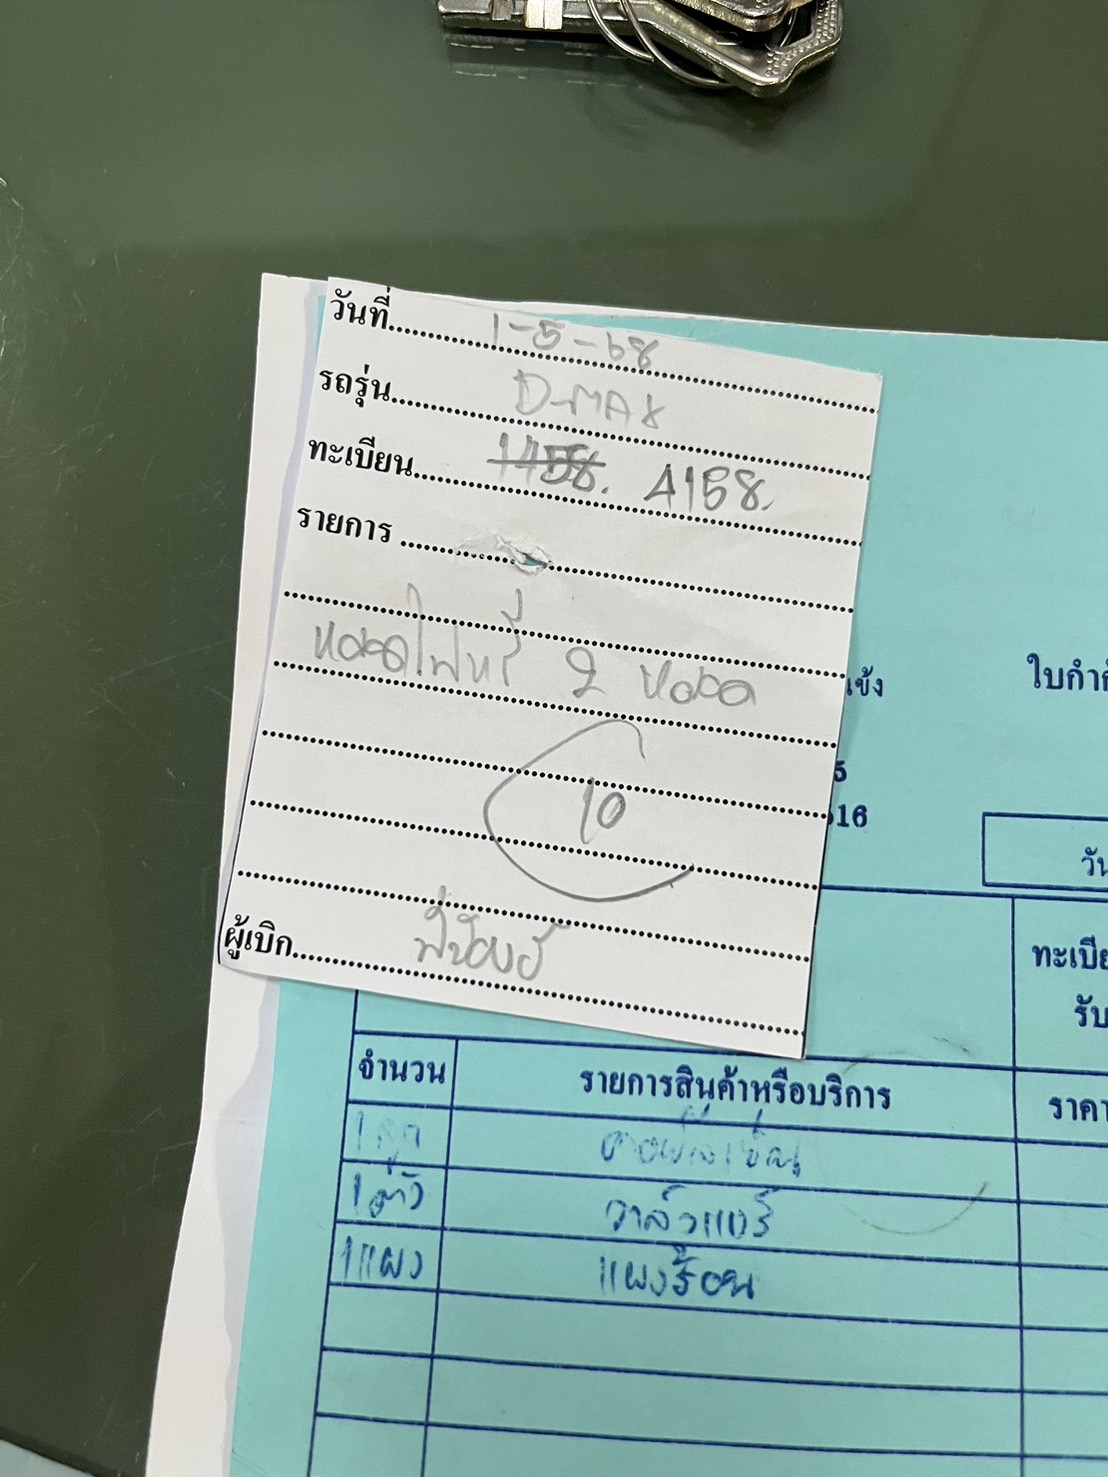 วันที่ 1-5-68
รถรุ่น D-MAX
ทะเบียน 1458. 4158.
รายการ
หลอดไฟหรี่ 2 หลอด
10
ผู้เบิก
แข้ง
ใบกำ
5
516
วัน
ทะเบีย
รับ
จำนวน รายการสินค้าหรือบริการ ราคา
1 ลูก
1 ตัว วาล์วแอร์
1 แผง แผงร้อน